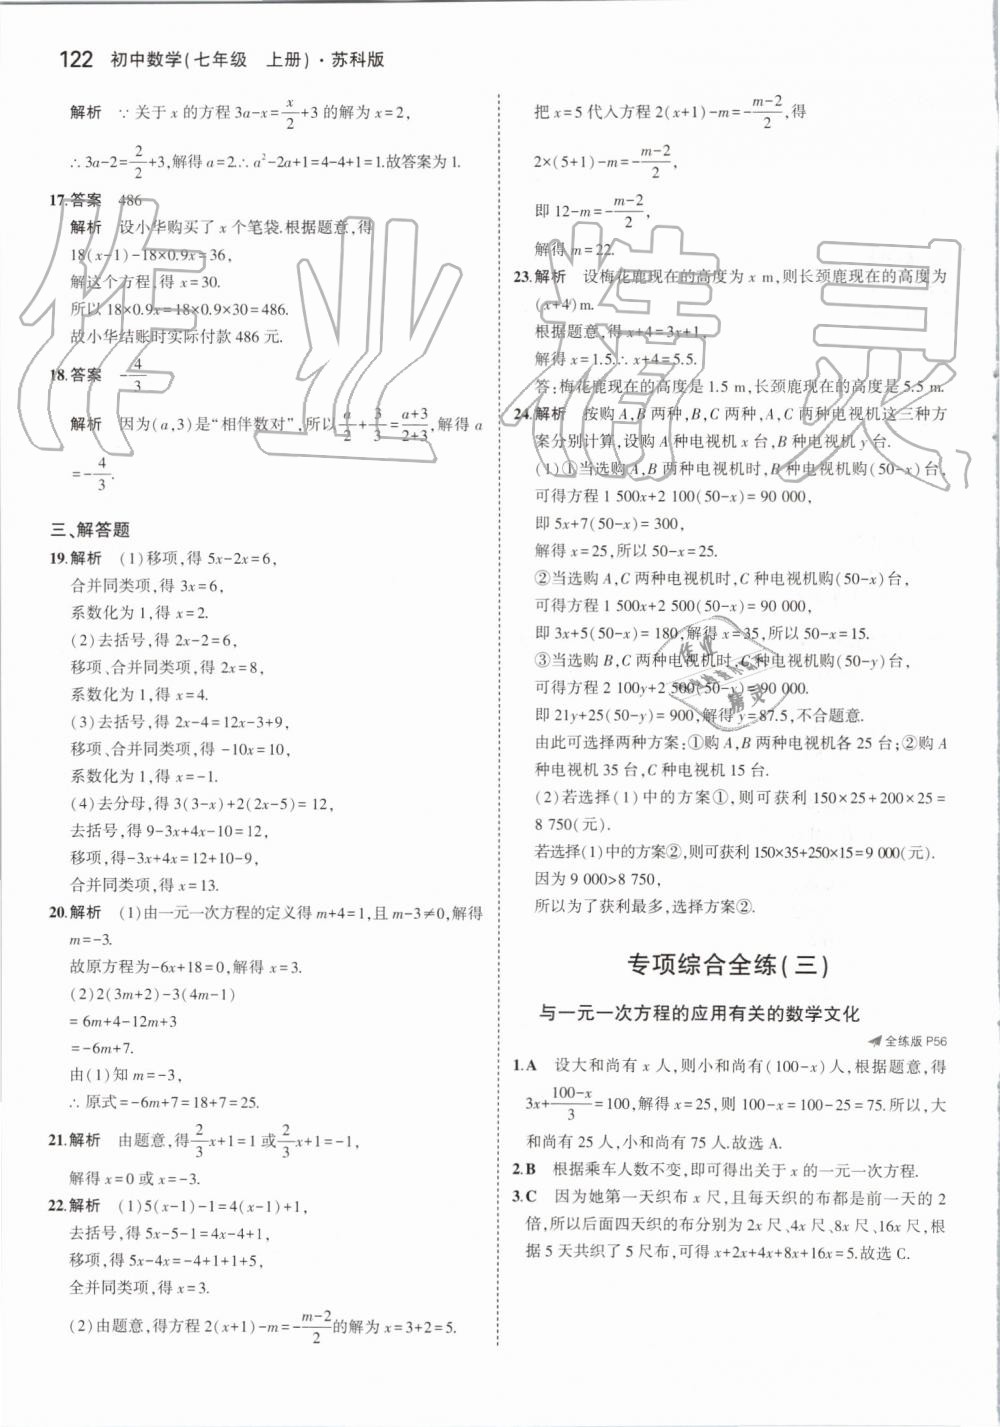 122 初中数学(七年级 上册)·苏科版
解析 ∵关于x的方程3a-x=x/2+3的解为x=2,
∴3a-2=2/2+3,解得a=2.∴a²-2a+1=4-4+1=1.故答案为1.
17.答案 486
解析 设小华购买了x个笔袋.根据题意,得
18(x-1)-18×0.9x=36,
解这个方程,得x=30.
所以18×0.9x=18×0.9×30=486.
故小华结账时实际付款486元.
18.答案 -4/3
解析 因为(a,3)是“相伴数对”,所以a/2+3/3=(a+3)/(2+3),解得a
=-4/3.
三、解答题
19.解析 (1)移项,得5x-2x=6,
合并同类项,得3x=6,
系数化为1,得x=2.
(2)去括号,得2x-2=6,
移项、合并同类项,得2x=8,
系数化为1,得x=4.
(3)去括号,得2x-4=12x-3+9,
移项、合并同类项,得-10x=10,
系数化为1,得x=-1.
(4)去分母,得3(3-x)+2(2x-5)=12,
去括号,得9-3x+4x-10=12,
移项,得-3x+4x=12+10-9,
合并同类项,得x=13.
20.解析 (1)由一元一次方程的定义得m+4=1,且m-3≠0,解得
m=-3.
故原方程为-6x+18=0,解得x=3.
(2)2(3m+2)-3(4m-1)
=6m+4-12m+3
=-6m+7.
由(1)知m=-3,
∴原式=-6m+7=18+7=25.
21.解析 由题意,得2/3x+1=1或2/3x+1=-1,
解得x=0或x=-3.
22.解析 (1)5(x-1)-1=4(x-1)+1,
去括号,得5x-5-1=4x-4+1,
移项,得5x-4x=-4+1+1+5,
全并同类项,得x=3.
(2)由题意,得方程2(x+1)-m=-(m-2)/2的解为x=3+2=5.
把x=5代入方程2(x+1)-m=-(m-2)/2,得
2×(5+1)-m=-(m-2)/2,
即12-m=-(m-2)/2,
解得m=22.
23.解析 设梅花鹿现在的高度为x m,则长颈鹿现在的高度为
(x+4)m.
根据题意,得x+4=3x+1,
解得x=1.5.∴x+4=5.5.
答:梅花鹿现在的高度是1.5 m,长颈鹿现在的高度是5.5 m.
24.解析 按购A,B两种,B,C两种,A,C两种电视机这三种方
案分别计算,设购A种电视机x台,B种电视机y台.
(1)①当选购A,B两种电视机时,B种电视机购(50-x)台,
可得方程1 500x+2 100(50-x)=90 000,
即5x+7(50-x)=300,
解得x=25,所以50-x=25.
②当选购A,C两种电视机时,C种电视机购(50-x)台,
可得方程1 500x+2 500(50-x)=90 000,
即3x+5(50-x)=180,解得x=35,所以50-x=15.
③当选购B,C两种电视机时,C种电视机购(50-y)台,
可得方程2 100y+2 500(50-y)=90 000.
即21y+25(50-y)=900,解得y=87.5,不合题意.
由此可选择两种方案:①购A,B两种电视机各25台;②购A
种电视机35台,C种电视机15台.
(2)若选择(1)中的方案①,则可获利150×25+200×25=
8 750(元).
若选择(1)中的方案②,则可获利150×35+250×15=9 000(元).
因为9 000>8 750,
所以为了获利最多,选择方案②.
专项综合全练(三)
与一元一次方程的应用有关的数学文化
全练版 P56
1.A 设大和尚有x人,则小和尚有(100-x)人,根据题意,得
3x+(100-x)/3=100,解得x=25,则100-x=100-25=75.所以,大
和尚有25人,小和尚有75人.故选A.
2.B 根据乘车人数不变,即可得出关于x的一元一次方程.
3.C 因为她第一天织布x尺,且每天织的布都是前一天的2
倍,所以后面四天织的布分别为2x尺、4x尺、8x尺、16x尺,根
据5天共织了5尺布,可得x+2x+4x+8x+16x=5.故选C.
作业精灵